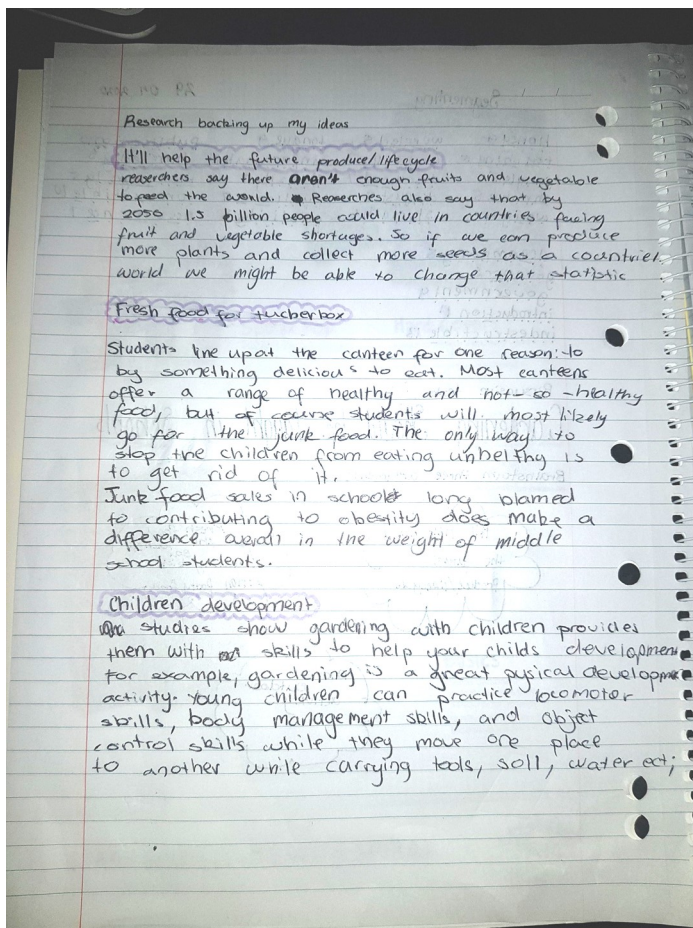 Research backing up my ideas
It'll help the future produce/lifecycle
reaserchers say there aren't enough fruits and vegetable
to feed the world. Reaserches also say that by
2050 1.5 billion people could live in countries facing
fruit and vegetable shortages. So if we can produce
more plants and collect more seeds as a countrie/
world we might be able to change that statistic
Fresh food for tuckerbox
Students line up at the canteen for one reason: to
by something delicious to eat. Most canteens
offer a range of healthy and not-so-healthy
food, but of course students will most likely
go for the junk food. The only way to
stop the children from eating unhelthy is
to get rid of it.
Junk food sales in school long blamed
to contributing to obestity does make a
difference overall in the weight of middle
school students.
Children development
studies show gardening with children provides
them with skills to help your childs development
for example, gardening is a great pysical developme
activity. Young children can practice locomotor
skills, body management skills, and object
control skills while they move one place
to another while carrying tools, soil, water ect;